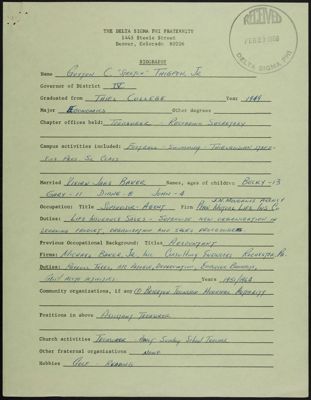 THE DELTA SIGMA PHI FRATERNITY
1445 Steele Street
Denver, Colorado 80206
RECEIVED
FEB 23
DELTA SIGMA PHI
BIOGRAPHY
Name Gordon C. Thigpen Jr.
Governor of District IV
Graduated from Thiel College Year 1949
Major Economics Other degrees
Chapter offices held: Treasurer - Recording Secretary
Campus activities included: Football - Swimming - Interfraternity
Pres Sr. Class
Married Vivian Jane Baker Names, ages of children: Becky-13
Gary-11 Diane-8 John-4
Occupation: Title Supervisor-Agent Firm Penn Mutual Life Ins. Co.
Duties: Life Insurance Sales - Supervise new organization in
learning product, organization and sales procedures
Previous Occupational Background: Titles Accountant
Firms: Michael Baker, Jr. Inc. Consulting Engineers Rochester, Pa.
Duties: Payroll Taxes, Depreciation, Employee Benefits,
Years 1951/1962
Community organizations, if any
Positions in above Assistant Treasurer
Church activities Treasurer - Sunday School Teacher
Other fraternal organizations None
Hobbies Golf Reading